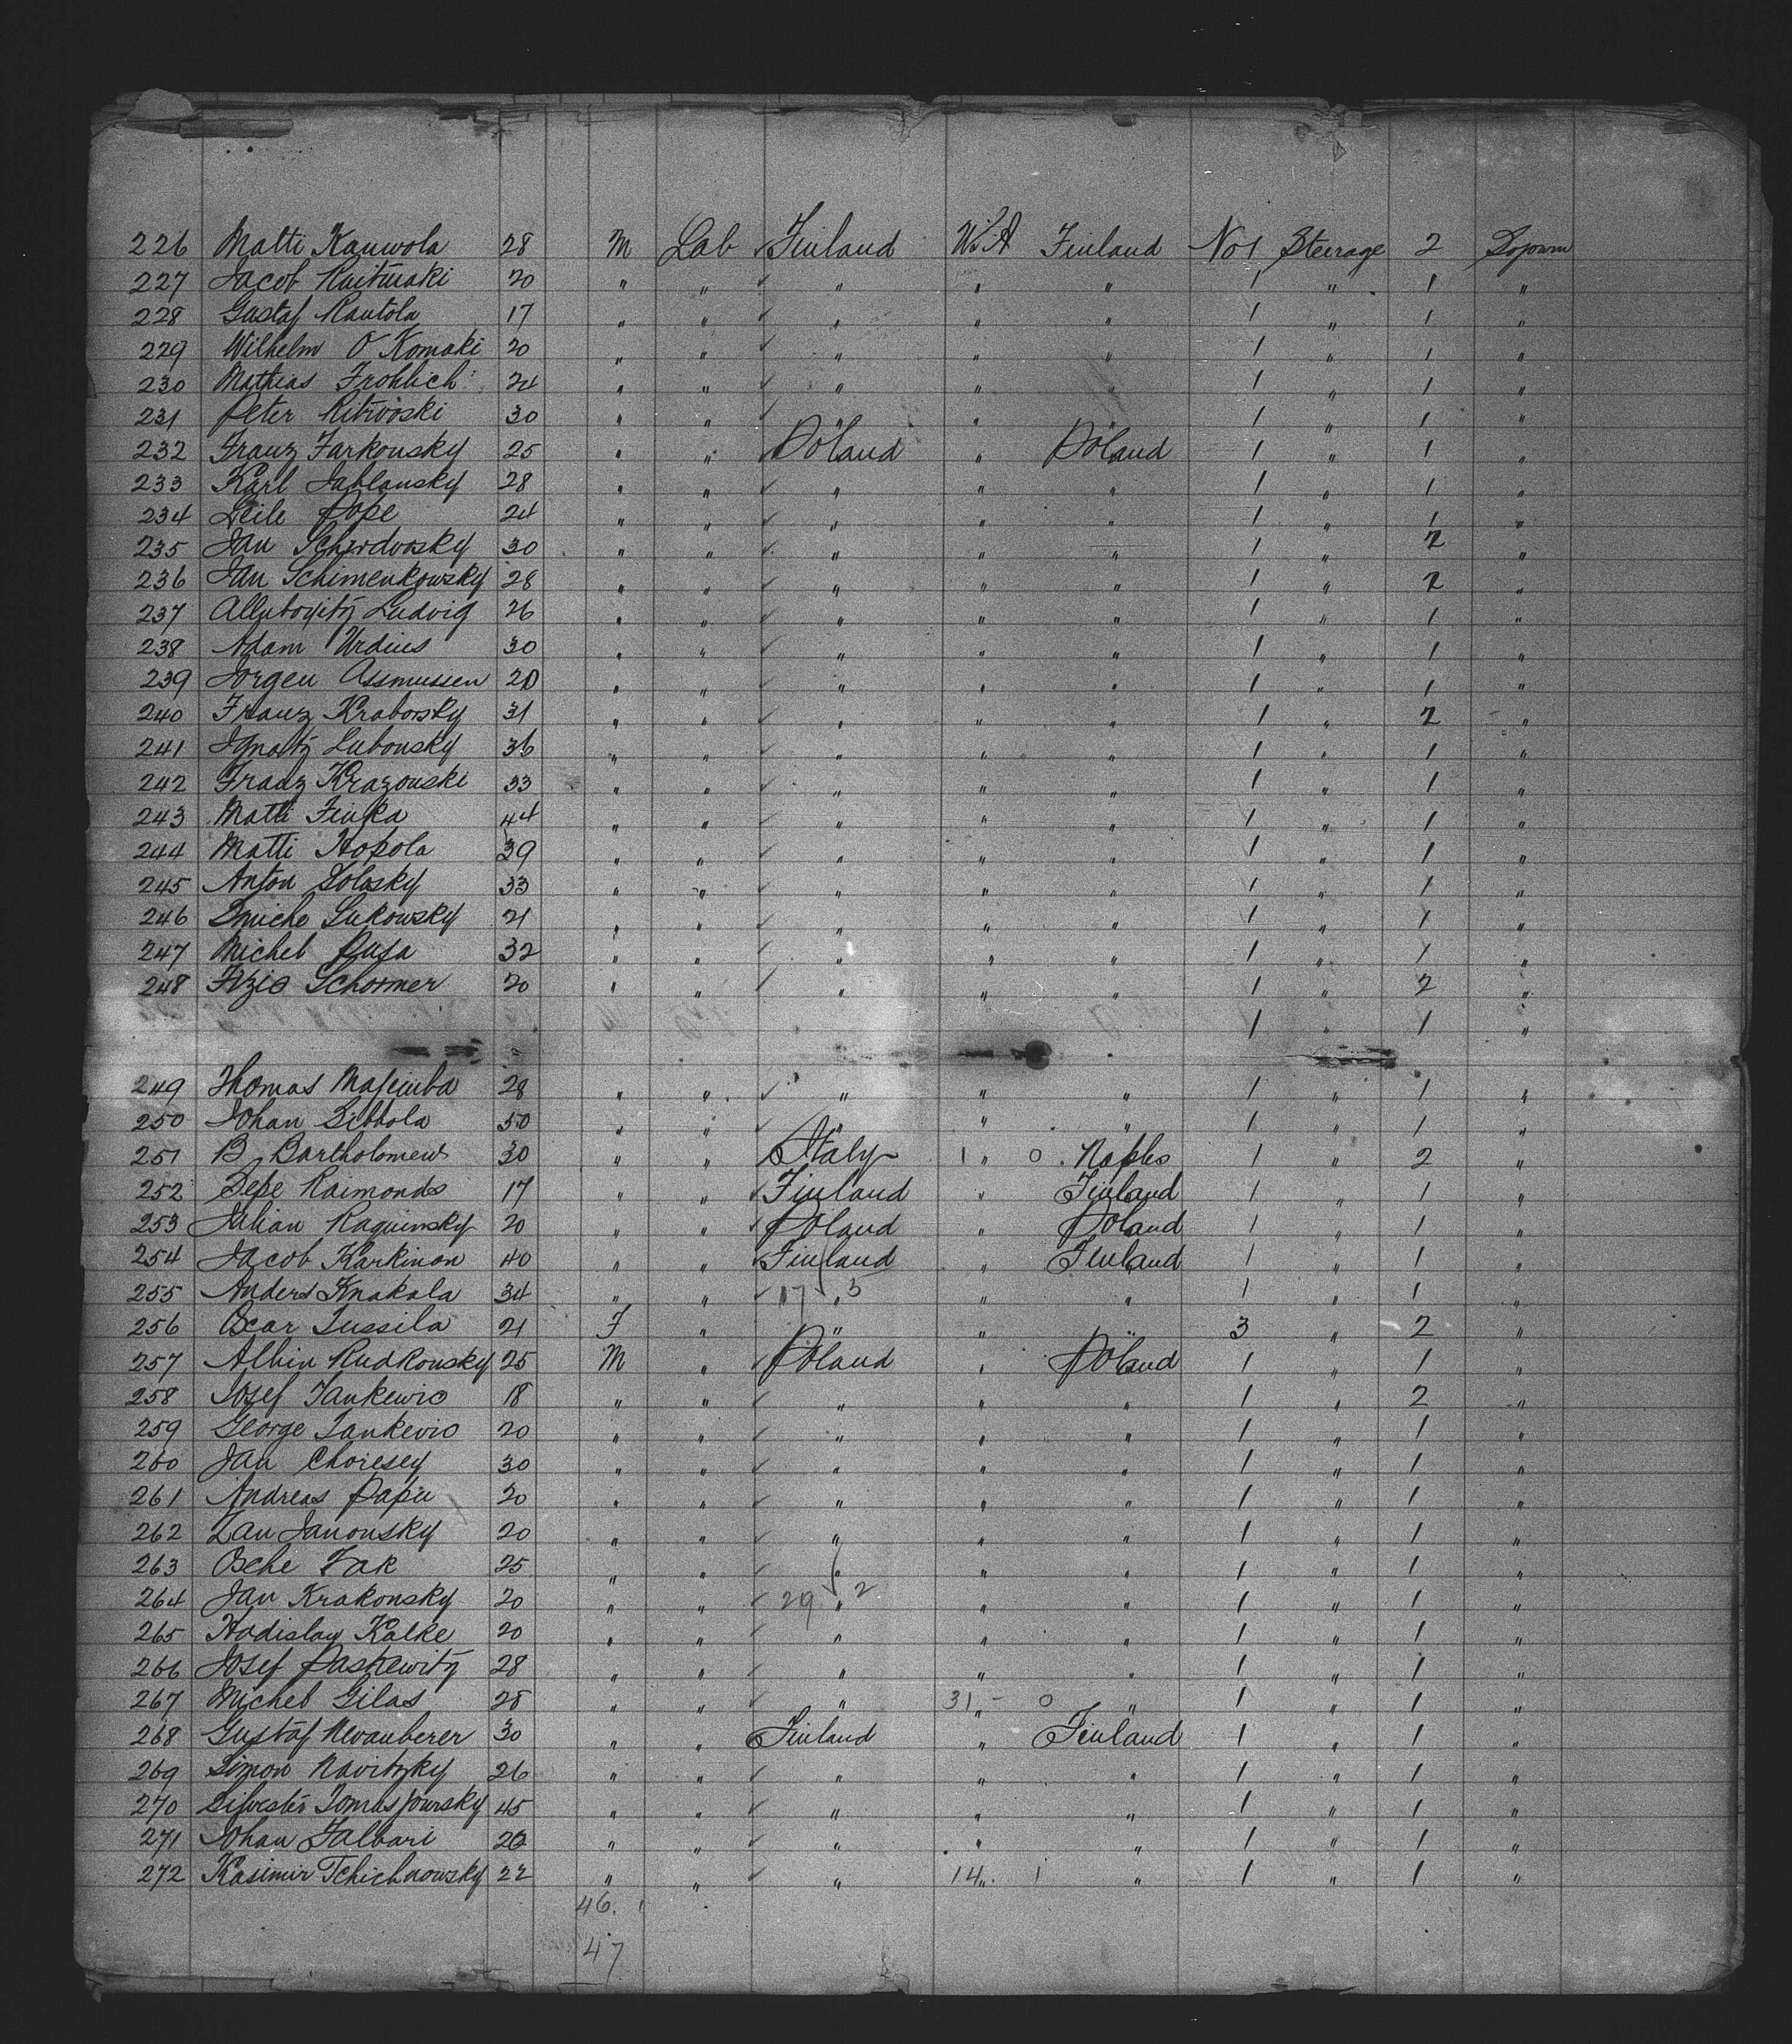 226 Matti Kauwola 28 M Lab Finland U.S.A Finland No 1 Steerage 2 Sojourn
227 Jacob Raitmaki 20 " " " " " 1 " 1 "
228 Gustaf Rautola 17 " " " " " 1 " 1 "
229 Wilhelm O Komaki 20 " " " " " 1 " 1 "
230 Mathias Frohlich 24 " " " " " 1 " 1 "
231 Peter 30 " " " " " 1 " 1 "
232 Franz Farkonsky 25 " " Poland " Poland 1 " 1 "
233 Karl Jablansky 28 " " " " " 1 " 1 "
234 Leile Pope 24 " " " " " 1 " 1 "
235 Jan 30 " " " " " 1 " 2 "
236 Jan Schimenkowsky 28 " " " " " 1 " 2 "
237 Ludvig 26 " " " " " 1 " 1 "
238 Adam Urdius 30 " " " " " 1 " 1 "
239 Jorgen Assmussen 20 " " " " " 1 " 1 "
240 Franz Krabowsky 31 " " " " " 1 " 2 "
241 Ignatz Lubonsky 36 " " " " " 1 " 1 "
242 Franz Krazouski 33 " " " " " 1 " 1 "
243 Matti Finka 44 " " " " " 1 " 1 "
244 Matti Hopola 39 " " " " " 1 " 1 "
245 Anton Solosky 33 " " " " " 1 " 1 "
246 Lukowsky 21 " " " " " 1 " 1 "
247 Michel Pusa 32 " " " " " 1 " 1 "
248 Schormer 20 " " " " " 1 " 2 "
1 " 1 "
249 Thomas 28 " " " " " 1 " 1 "
250 Johan Sibbola 30 " " " " " 1 " 1 "
251 B Bartholomew 30 " " Italy 1 " 0 Naples 1 " 2 "
252 Sepe Raimonds 17 " " Finland " Finland 1 " 1 "
253 Julian Raquinsky 20 " " Poland " Poland 1 " 1 "
254 Jacob Karkinan 40 " " Finland " Finland 1 " 1 "
255 Anders Knakala 34 " " 17 " 3 " " 1 " 1 "
256 Oscar Lussila 21 F " " " " 3 " 2 "
257 Albin Rudkonsky 25 M " Poland " Poland 1 " 1 "
258 Josef Jankewic 18 " " " " " 1 " 2 "
259 George Jankevic 20 " " " " " 1 " 1 "
260 Jan Choresey 30 " " " " " 1 " 1 "
261 Andreas Papu 20 " " " " " 1 " 1 "
262 Lau Janonsky 20 " " " " " 1 " 1 "
263 Osche Zak 25 " " " " " 1 " 1 "
264 Jan Krakonsky 20 " " 29 " 2 " " 1 " 1 "
265 Hadislav Kalke 20 " " " " " 1 " 1 "
266 Josef Paskewitz 28 " " " " " 1 " 1 "
267 Michel Gilas 28 " " " 31 " - 0 " 1 " 1 "
268 Gustaf Newanberer 30 " " Finland " Finland 1 " 1 "
269 Simon Navitzky 26 " " " " " 1 " 1 "
270 Silvester 45 " " " " " 1 " 1 "
271 Johan Talbari 26 " " " " " 1 " 1 "
272 Kasimir Tchichnowsky 22 " " " 14 " 1 " 1 " 1 "
46. 1
47